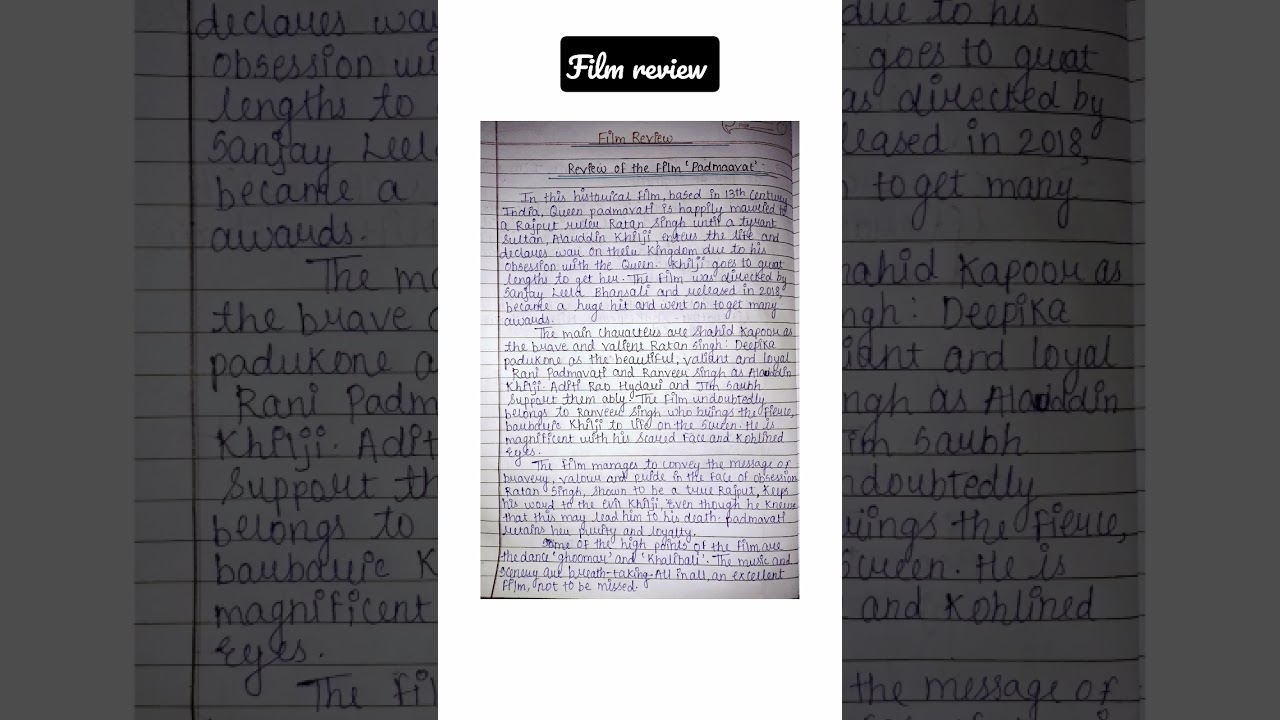 Film review
Film Review
Review of the Film 'Padmaavat'
In this historical film, based in 13th Century
India, Queen padmavati is happily married to
a Rajput ruler Ratan Singh until a tyrant
Sultan, Alauddin Khilji, enters the life and
declares war on their Kingdom due to his
obsession with the Queen. Khilji goes to great
lengths to get her. The film was directed by
Sanjay Leela Bhansali and released in 2018,
became a huge hit and went on to get many
awards.
The main characters are Shahid Kapoor as
the brave and valient Ratan Singh: Deepika
padukone as the beautiful, valiant and loyal
Rani Padmavati and Ranveer Singh as Alauddin
Khilji. Aditi Rao Hydari and Jim Saubh
Support them ably. The Film undoubtedly
belongs to Ranveer Singh who brings the fierce,
barbaric Khilji to life on the Screen. He is
magnificent with his Scared Face and Kohlined
Eyes.
The Film manages to convey the message of
bravery, valour and pride in the Face of obsession
Ratan Singh, shown to be a true Rajput, keeps
his word to the evil Khilji, Even though he knews
that this may lead him to his death. padmavati
retains her purity and loyalty.
Some of the high points of the film are
the dance 'ghoomar' and 'Khalibali'. The music and
scenery are breath-taking. All in all, an excellent
film, not to be missed.